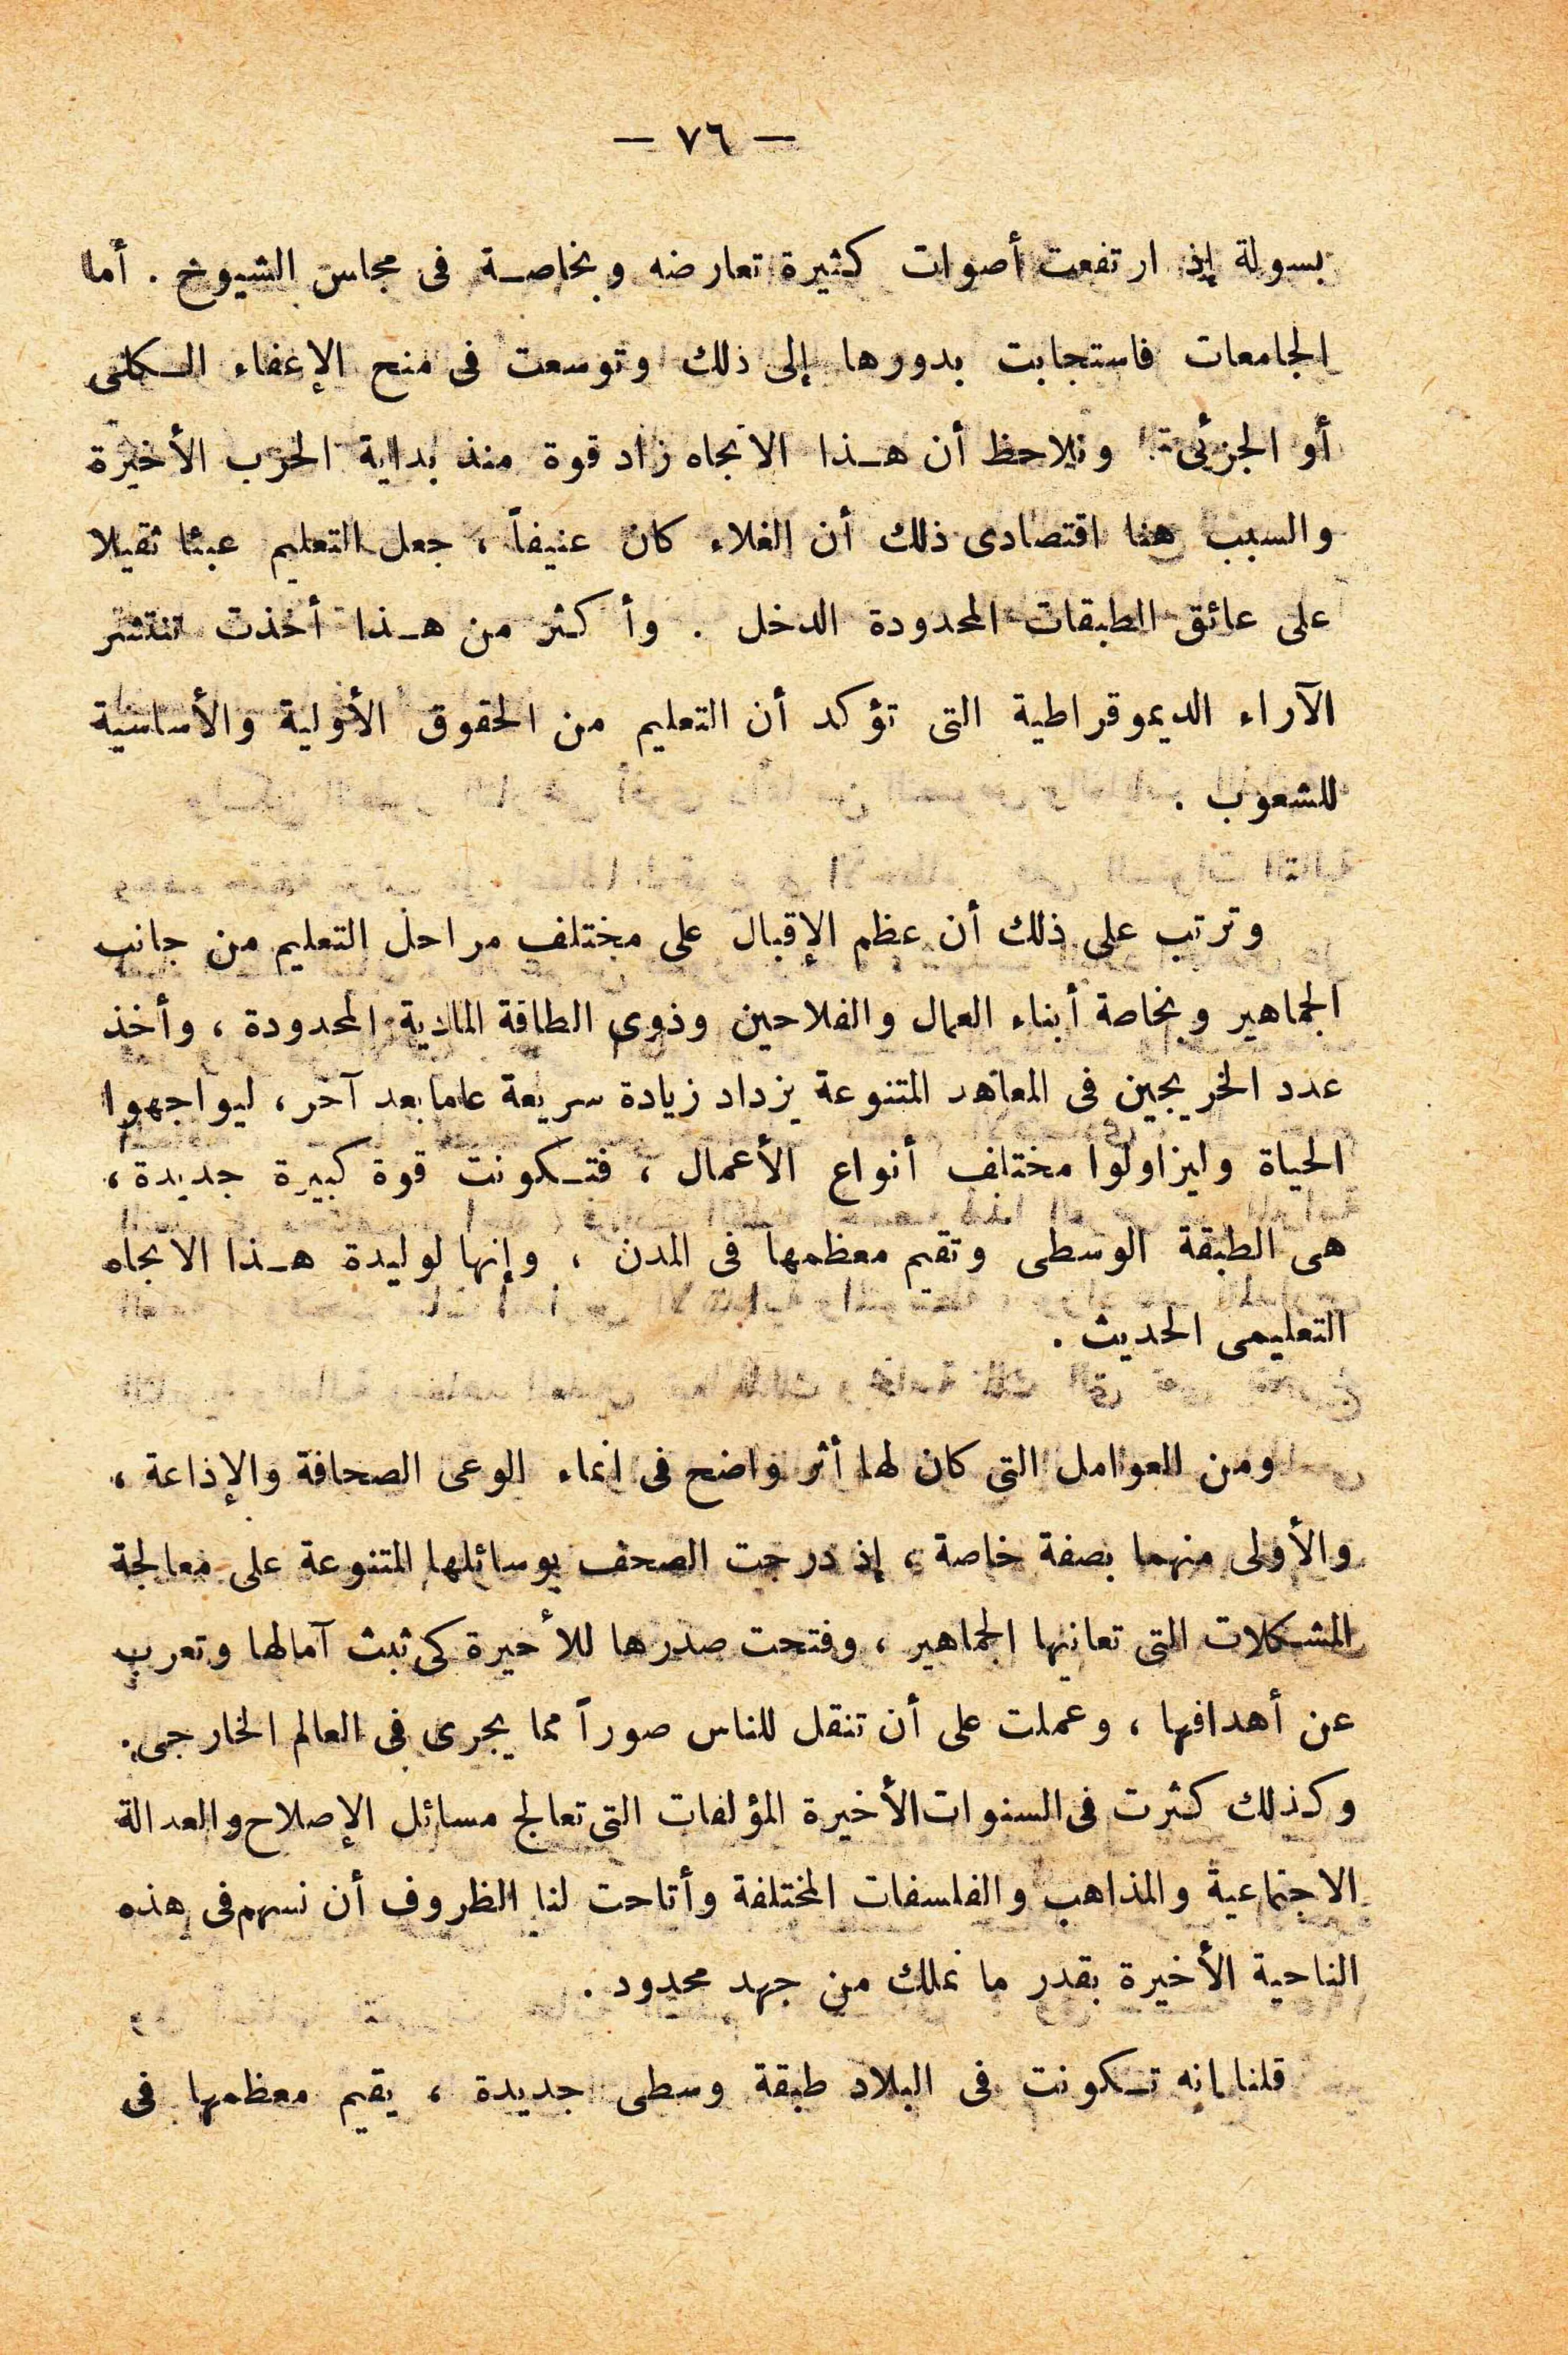 — ٧٦ —
بسولة إذ ارتفعت أصوات كثيرة تعارضه وبخاصة فى مجلس الشيوخ . أما
الجامعات فاستجابت بدورها إلى ذلك وتوسعت فى منح الإعفاء الكلى
أو الجزئى ونلاحظ أن هذا الاتجاه زاد قوة منذ بداية الحرب الأخيرة
والسبب هنا اقتصادى ذلك أن الغلاء كان عنيفاً ، جعل التعليم عبئا ثقيلا
على عائق الطبقات المحدودة الدخل . وأكثر من هذا أخذت تنتشر
الآراء الديموقراطية التى تؤكد أن التعليم من الحقوق الأولية والأساسية
للشعوب .
وترتب على ذلك أن عظم الإقبال على مختلف مراحل التعليم من جانب
الجماهير وبخاصة أبناء العمال والفلاحين وذوى الطاقة المادية المحدودة ، وأخذ
عدد الخريجين فى المعاهد المتنوعة يزداد زيادة سريعة عاما بعد آخر ، ليواجهوا
الحياة وليزاولوا مختلف أنواع الأعمال ، فتكونت قوة كبيرة جديدة ،
هى الطبقة الوسطى وتقيم معظمها فى المدن ، وإنها لوليدة هذا الاتجاه
التعليمى الحديث .
ومن العوامل التى كان لها أثر واضح فى انماء الوعى الصحافة والإذاعة ،
والأولى منهما بصفة خاصة ، إذ درجت الصحف بوسائلها المتنوعة على معالجة
المشكلات التى تعانيها الجماهير ، وفتحت صدرها للأخيرة كى تبث آمالها وتعرب
عن أهدافها ، وعملت على أن تنقل للناس صوراً مما يجرى فى العالم الخارجى .
وكذلك كثرت فى السنوات الأخيرة المؤلفات التى تعالج مسائل الإصلاح والعدالة
الاجتماعية والمذاهب والفلسفات المختلفة وأتاحت لنا الظروف أن نسهم فى هذه
الناحية الأخيرة بقدر ما نملك من جهد محدود .
قلنا انه تكونت فى البلاد طبقة وسطى جديدة ، يقيم معظمها فى